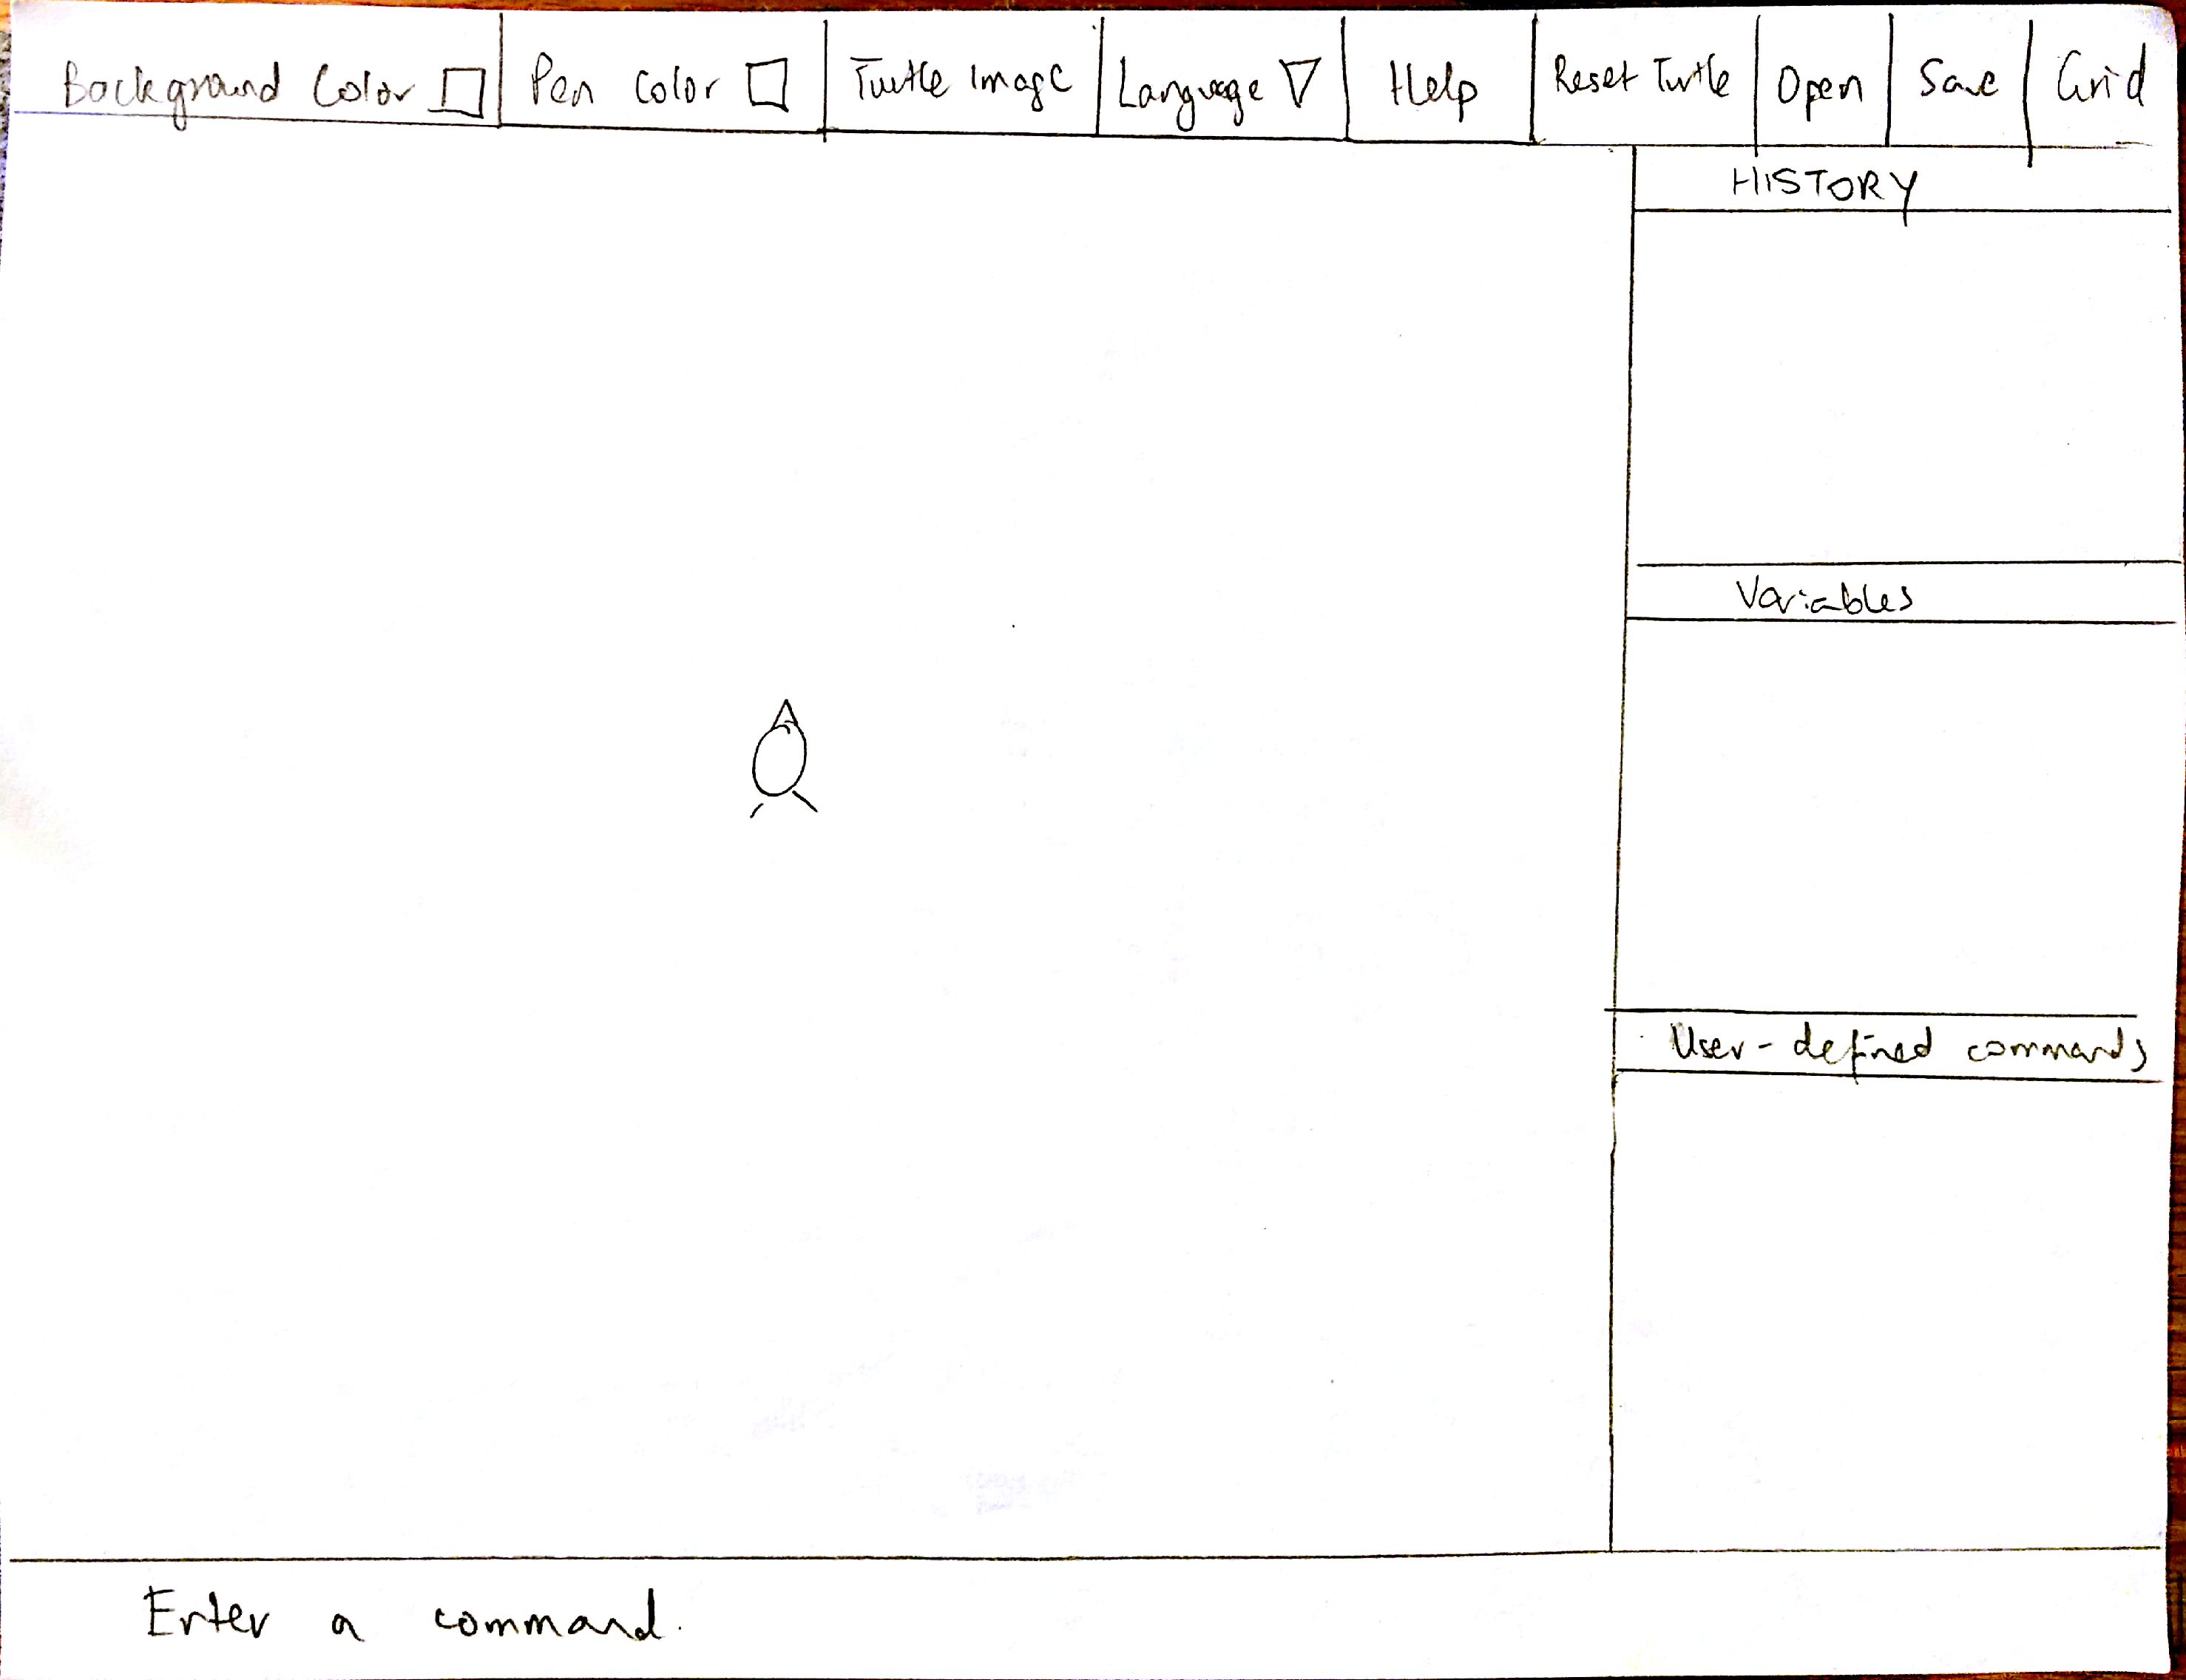 Background Color
Pen Color
Turtle Image
Language
Help
Reset Turtle
Open
Save
Grid
HISTORY
Variables
User-defined commands
Enter a command.